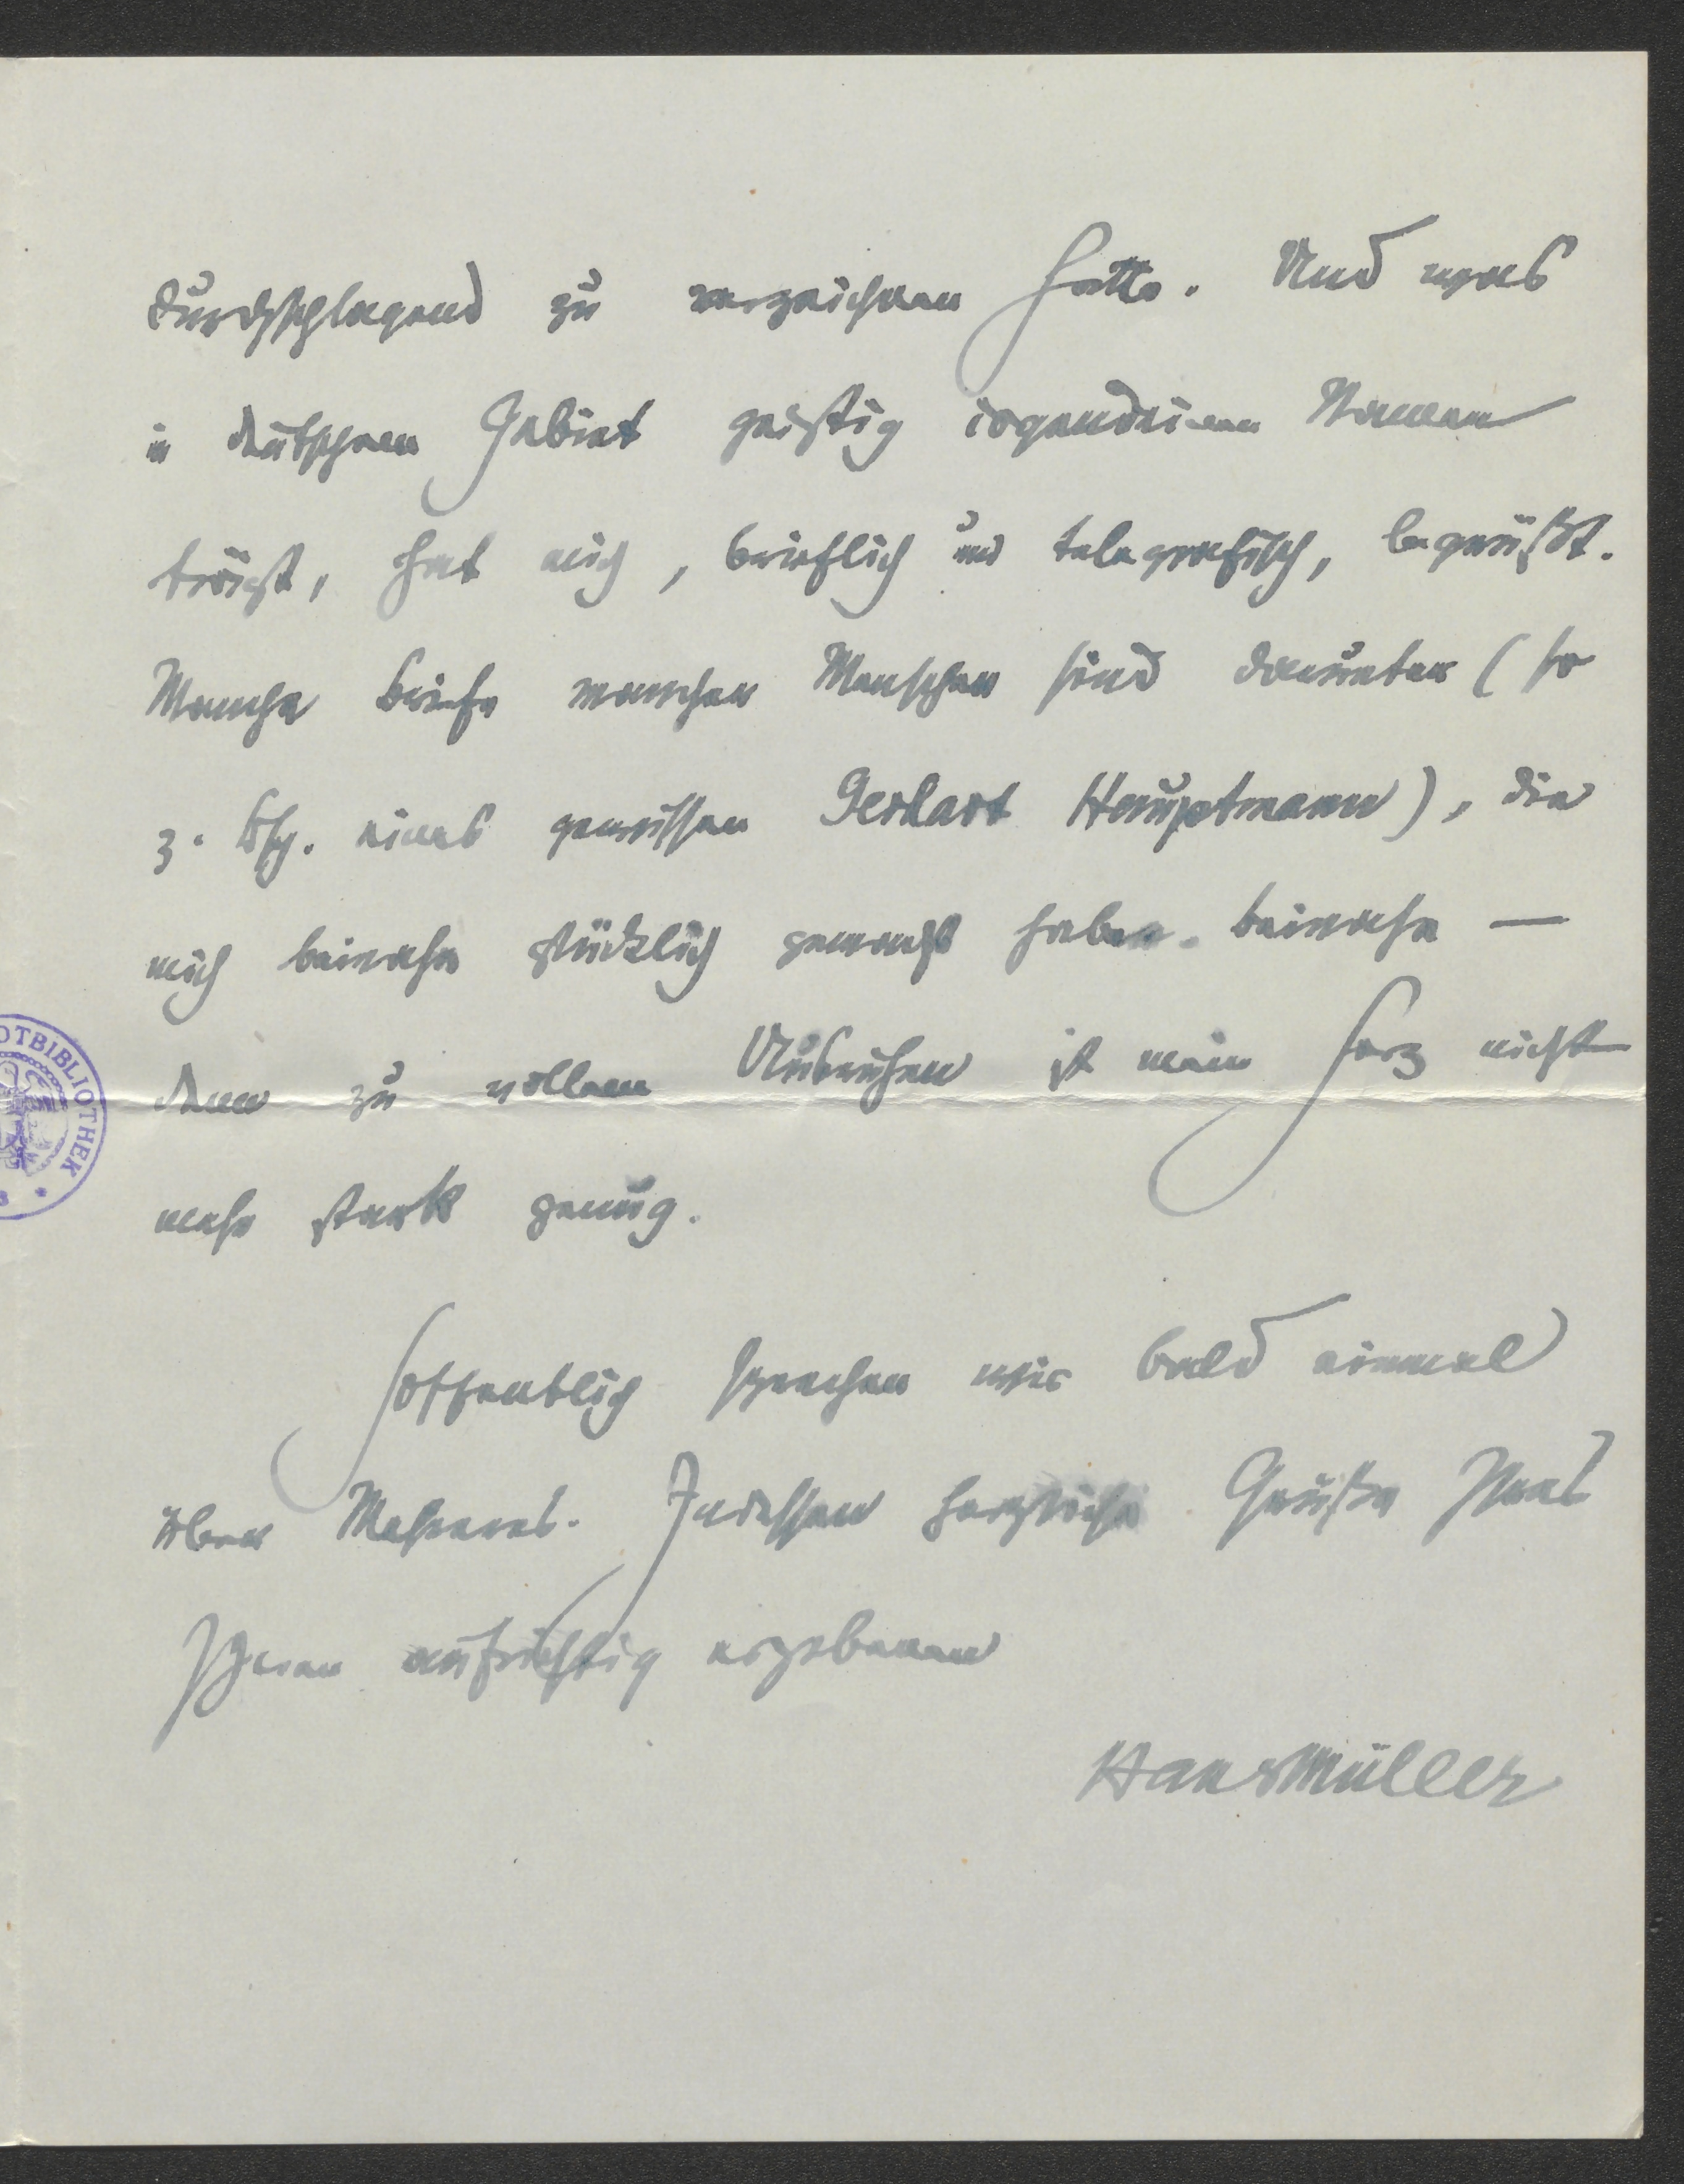 durchschlagend zu verzeichnen hatte. Und was
in deutschem Gebiet geistig irgendeinen Namen
trägt, hat mich, brieflich und telegrafisch, begrüßt.
Manche Briefe mancher Menschen sind darunter (so
z. Bsp. eines gewissen Gerhart Hauptmann), die
mich beinahe glücklich gemacht haben. beinahe —
denn zu vollem ist mein Herz nicht
mehr stark genug.
Hoffentlich sprechen wir bald einmal
über Mehreres. Indessen herzliche Grüße Ihres
Ihnen aufrichtig ergebenen
Hans Müller
OTBIBLIOTHEK